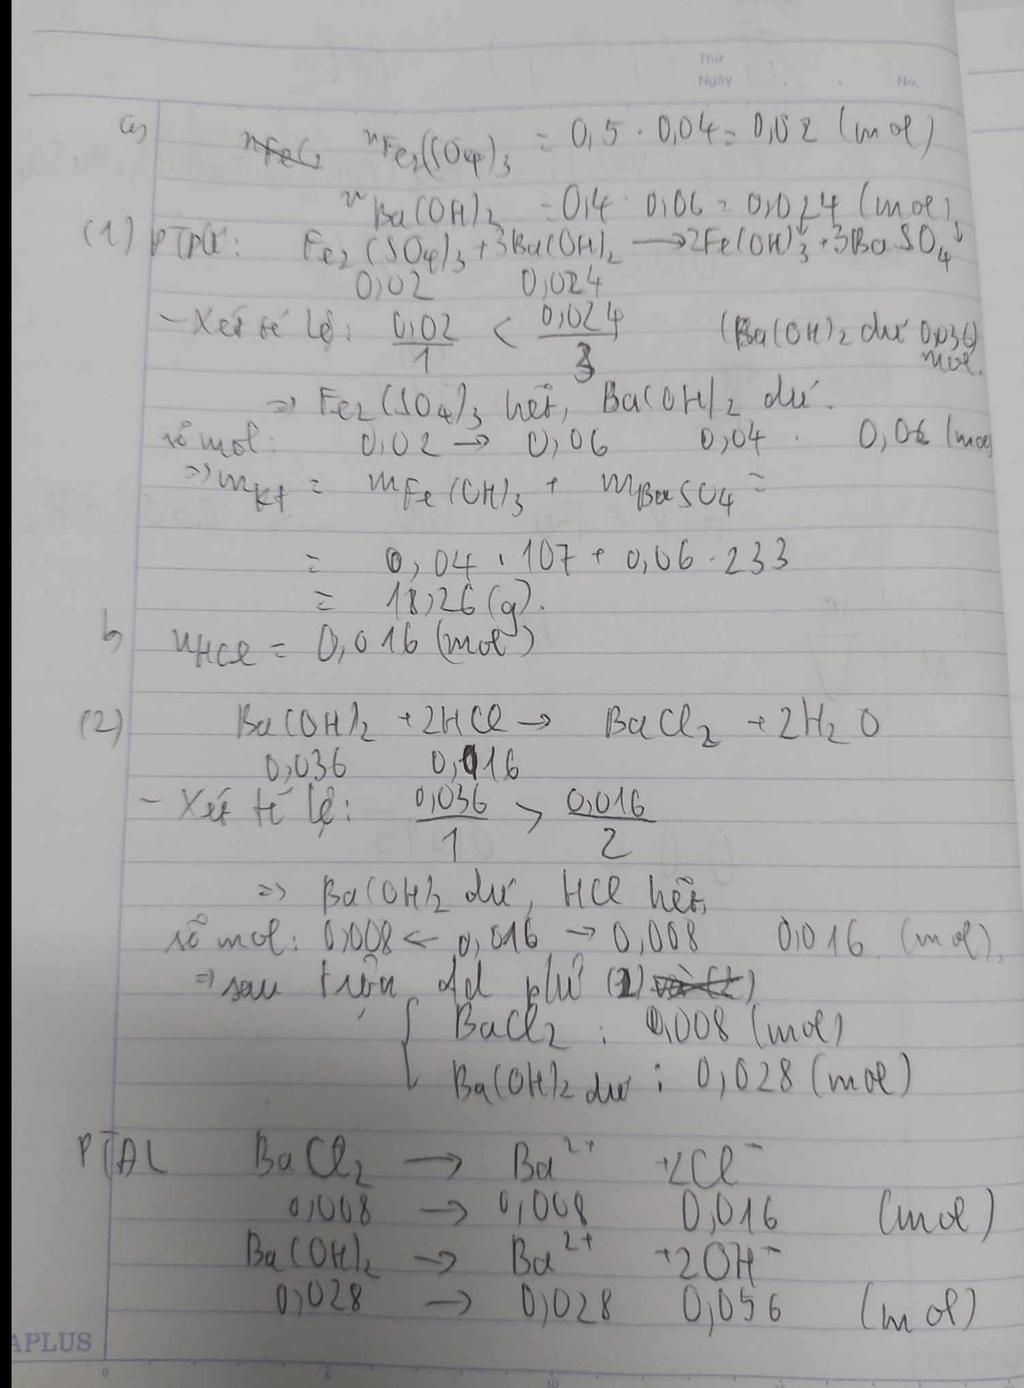 Thứ
Ngày No.
a, nFeCl nFe2(SO4)3 = 0,5 . 0,04 = 0,02 (mol)
nBa(OH)2 = 0,4 . 0,06 = 0,024 (mol)
(1) PTPƯ: Fe2(SO4)3 + 3Ba(OH)2 → 2Fe(OH)3↓ + 3BaSO4↓
0,02 0,024
- Xét tỉ lệ: 0,02/1 < 0,024/3 (Ba(OH)2 dư 0,036 mol.
=> Fe2(SO4)3 hết, Ba(OH)2 dư.
số mol: 0,02 → 0,06 0,04 . 0,06 (mol
=> mkt = mFe(OH)3 + mBaSO4 =
= 0,04 . 107 + 0,06 . 233
= 18,26 (g).
b nHCl = 0,016 (mol)
(2) Ba(OH)2 + 2HCl → BaCl2 + 2H2O
0,036 0,016
- Xét tỉ lệ: 0,036/1 > 0,016/2
=> Ba(OH)2 dư, HCl hết,
số mol: 0,008 ← 0,016 → 0,008 0,016 (mol).
=> sau trộn dd
BaCl2 : 0,008 (mol)
Ba(OH)2 dư : 0,028 (mol)
PTĐL BaCl2 → Ba2+ + 2Cl-
0,008 → 0,008 0,016 (mol)
Ba(OH)2 → Ba2+ + 2OH-
0,028 → 0,028 0,056 (mol)
APLUS
0 5 10